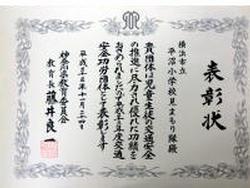 表彰状
横浜市立
平沼小学校見まもり隊殿
貴団体は児童生徒の交通安全
の推進に尽力され優れた功績を
おさめられましたので平成二十年度交通
安全功労団体として表彰します
平成二十年十一月二十一日
神奈川県教育委員会
教育長 藤井良一